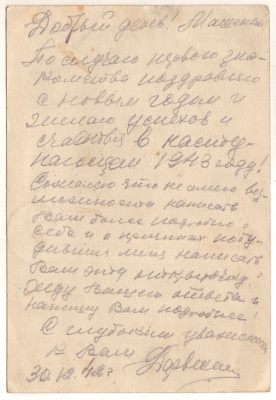 Добрый день! Машенька
По случаю нового зна-
комства поздравляю
с новым годом и
желаю успехов и
счастья в насту-
пающем 1943 году!
Сожалею что не имею воз-
можности написать
Вам более подробно о
себе и о причинах побу-
дивших меня написать
Вам эту открытку!
Жду Вашего ответа и
напишу Вам подробнее!
С глубоким уважением
к Вам
30.12.42 г.